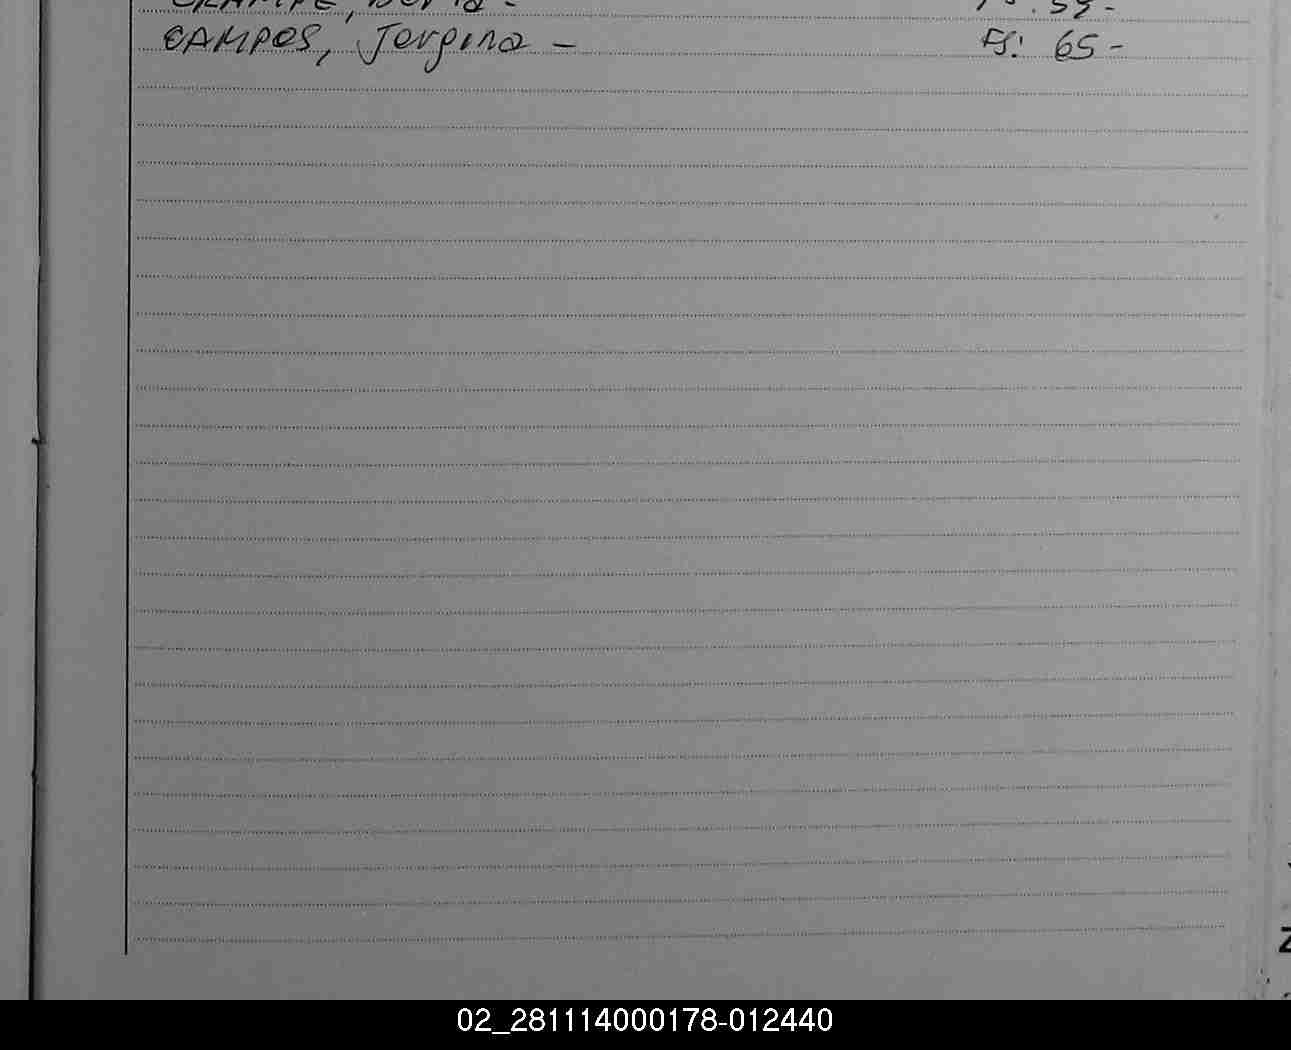 CAMPOS, Jorgina - Fs: 65-
Z
02_281114000178-012440